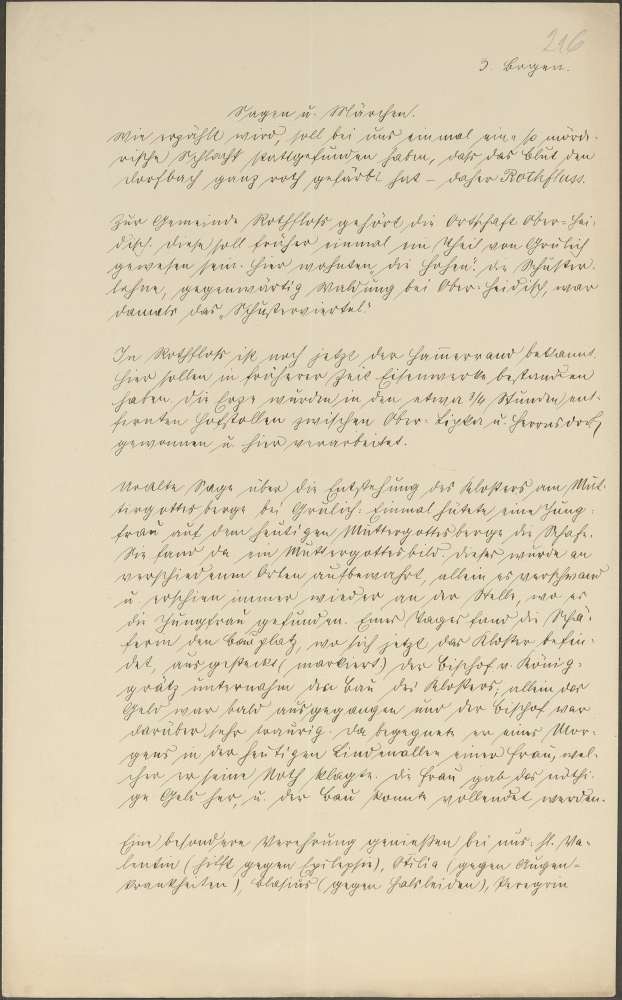 216
3. Bogen.
Sagen u. Märchen.
Wie erzählt wird, soll bei uns einmal eine so mörde-
rische Schlacht stattgefunden haben, dass das Blut den
Dorfbach ganz roth gefärbt hat – daher Rothfluss.
Zur Gemeinde Rothfloss gehört die Ortschaft Ober-Hei-
disch. Diese soll früher einmal ein Theil von Grulich
gewesen sein. Hier wohnten „die Hohen". Die Schuster-
lehne, gegenwärtig Waldung bei Ober-Heidisch, war
damals das „Schusterviertel".
In Rothfloss ist noch jetzt der Hammerrand bekannt.
Hier sollen in früherer Zeit Eisenwerke bestanden
haben. Die Erze wurden in den etwa 3/4 Stunden ent-
fernten Hofstollen zwischen Ober-Lipka u. Herrnsdorf,
gewonnen u. hier verarbeitet.
Uralte Sage über die Entstehung des Klosters am Mut-
tergottesberge bei Grulich: Einmal hütete eine Jung-
frau auf dem heutigen Muttergottesberge die Schafe.
Sie fand da ein Muttergottesbild. Dieses wurde an
verschiedenen Orten aufbewahrt, allein es verschwand
u. erschien immer wieder an der Stelle, wo es
die Jungfrau gefunden. Eines Tages fand die Schä-
ferin den Bauplatz, wo sich jetzt das Kloster befin-
det, ausgesteckt (markiert). Der Bischof v. König-
grätz unternahm den Bau des Klosters; allein das
Geld war bald ausgegangen und der Bischof war
darüber sehr traurig. Da begegnete er eines Mor-
gens in der heutigen Lindenallee einer Frau, wel-
cher er seine Noth klagte. Die Frau gab das nöthi-
ge Geld her, u. der Bau konnte vollendet werden.
Eine besondere Verehrung genießen bei uns: hl. Va-
lentin (hilft gegen Epilepsie), Otilia (gegen Augen-
krankheiten), Blasius (gegen Halsleiden), Peregrin